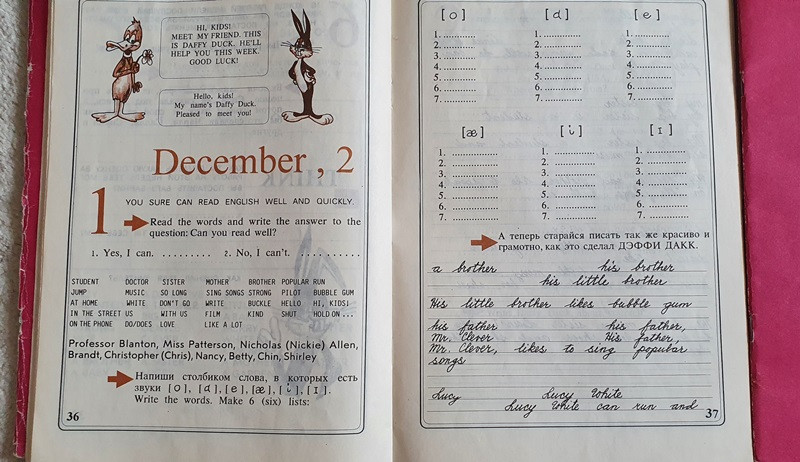 HI, KIDS!
MEET MY FRIEND. THIS
IS DAFFY DUCK. HE'LL
HELP YOU THIS WEEK.
GOOD LUCK!
Hello, kids!
My name's Daffy Duck.
Pleased to meet you!
December , 2
1
YOU SURE CAN READ ENGLISH WELL AND QUICKLY.
Read the words and write the answer to the
question: Can you read well?
1. Yes, I can. ......... 2. No, I can't. ..........
STUDENT DOCTOR SISTER MOTHER BROTHER POPULAR RUN
JUMP MUSIC SO LONG SING SONGS STRONG PILOT BUBBLE GUM
AT HOME WHITE DON'T GO WRITE BUCKLE HELLO HI, KIDS!
IN THE STREET US WITH US FILM KIND SHUT HOLD ON ...
ON THE PHONE DO/DOES LOVE LIKE A LOT
Professor Blanton, Miss Patterson, Nicholas (Nickie) Allen,
Brandt, Christopher (Chris), Nancy, Betty, Chin, Shirley
Напиши столбиком слова, в которых есть
звуки [o], [ɑ], [e], [æ], [ʌ], [ɪ].
Write the words. Make 6 (six) lists:
36
[o] [ɑ] [e]
1. ............ 1. ............ 1. ............
2. ............ 2. ............ 2. ............
3. ............ 3. ............ 3. ............
4. ............ 4. ............ 4. ............
5. ............ 5. ............ 5. ............
6. ............ 6. ............ 6. ............
7. ............ 7. ............ 7. ............
[æ] [ʌ] [ɪ]
1. ............ 1. ............ 1. ............
2. ............ 2. ............ 2. ............
3. ............ 3. ............ 3. ............
4. ............ 4. ............ 4. ............
5. ............ 5. ............ 5. ............
6. ............ 6. ............ 6. ............
7. ............ 7. ............ 7. ............
А теперь старайся писать так же красиво и
грамотно, как это сделал ДЭФФИ ДАКК.
a brother his brother
his little brother
His little brother likes bubble gum
his father his father,
Mr. Clever His father,
Mr. Clever, likes to sing popular
songs
Lucy Lucy White
Lucy White can run and
37